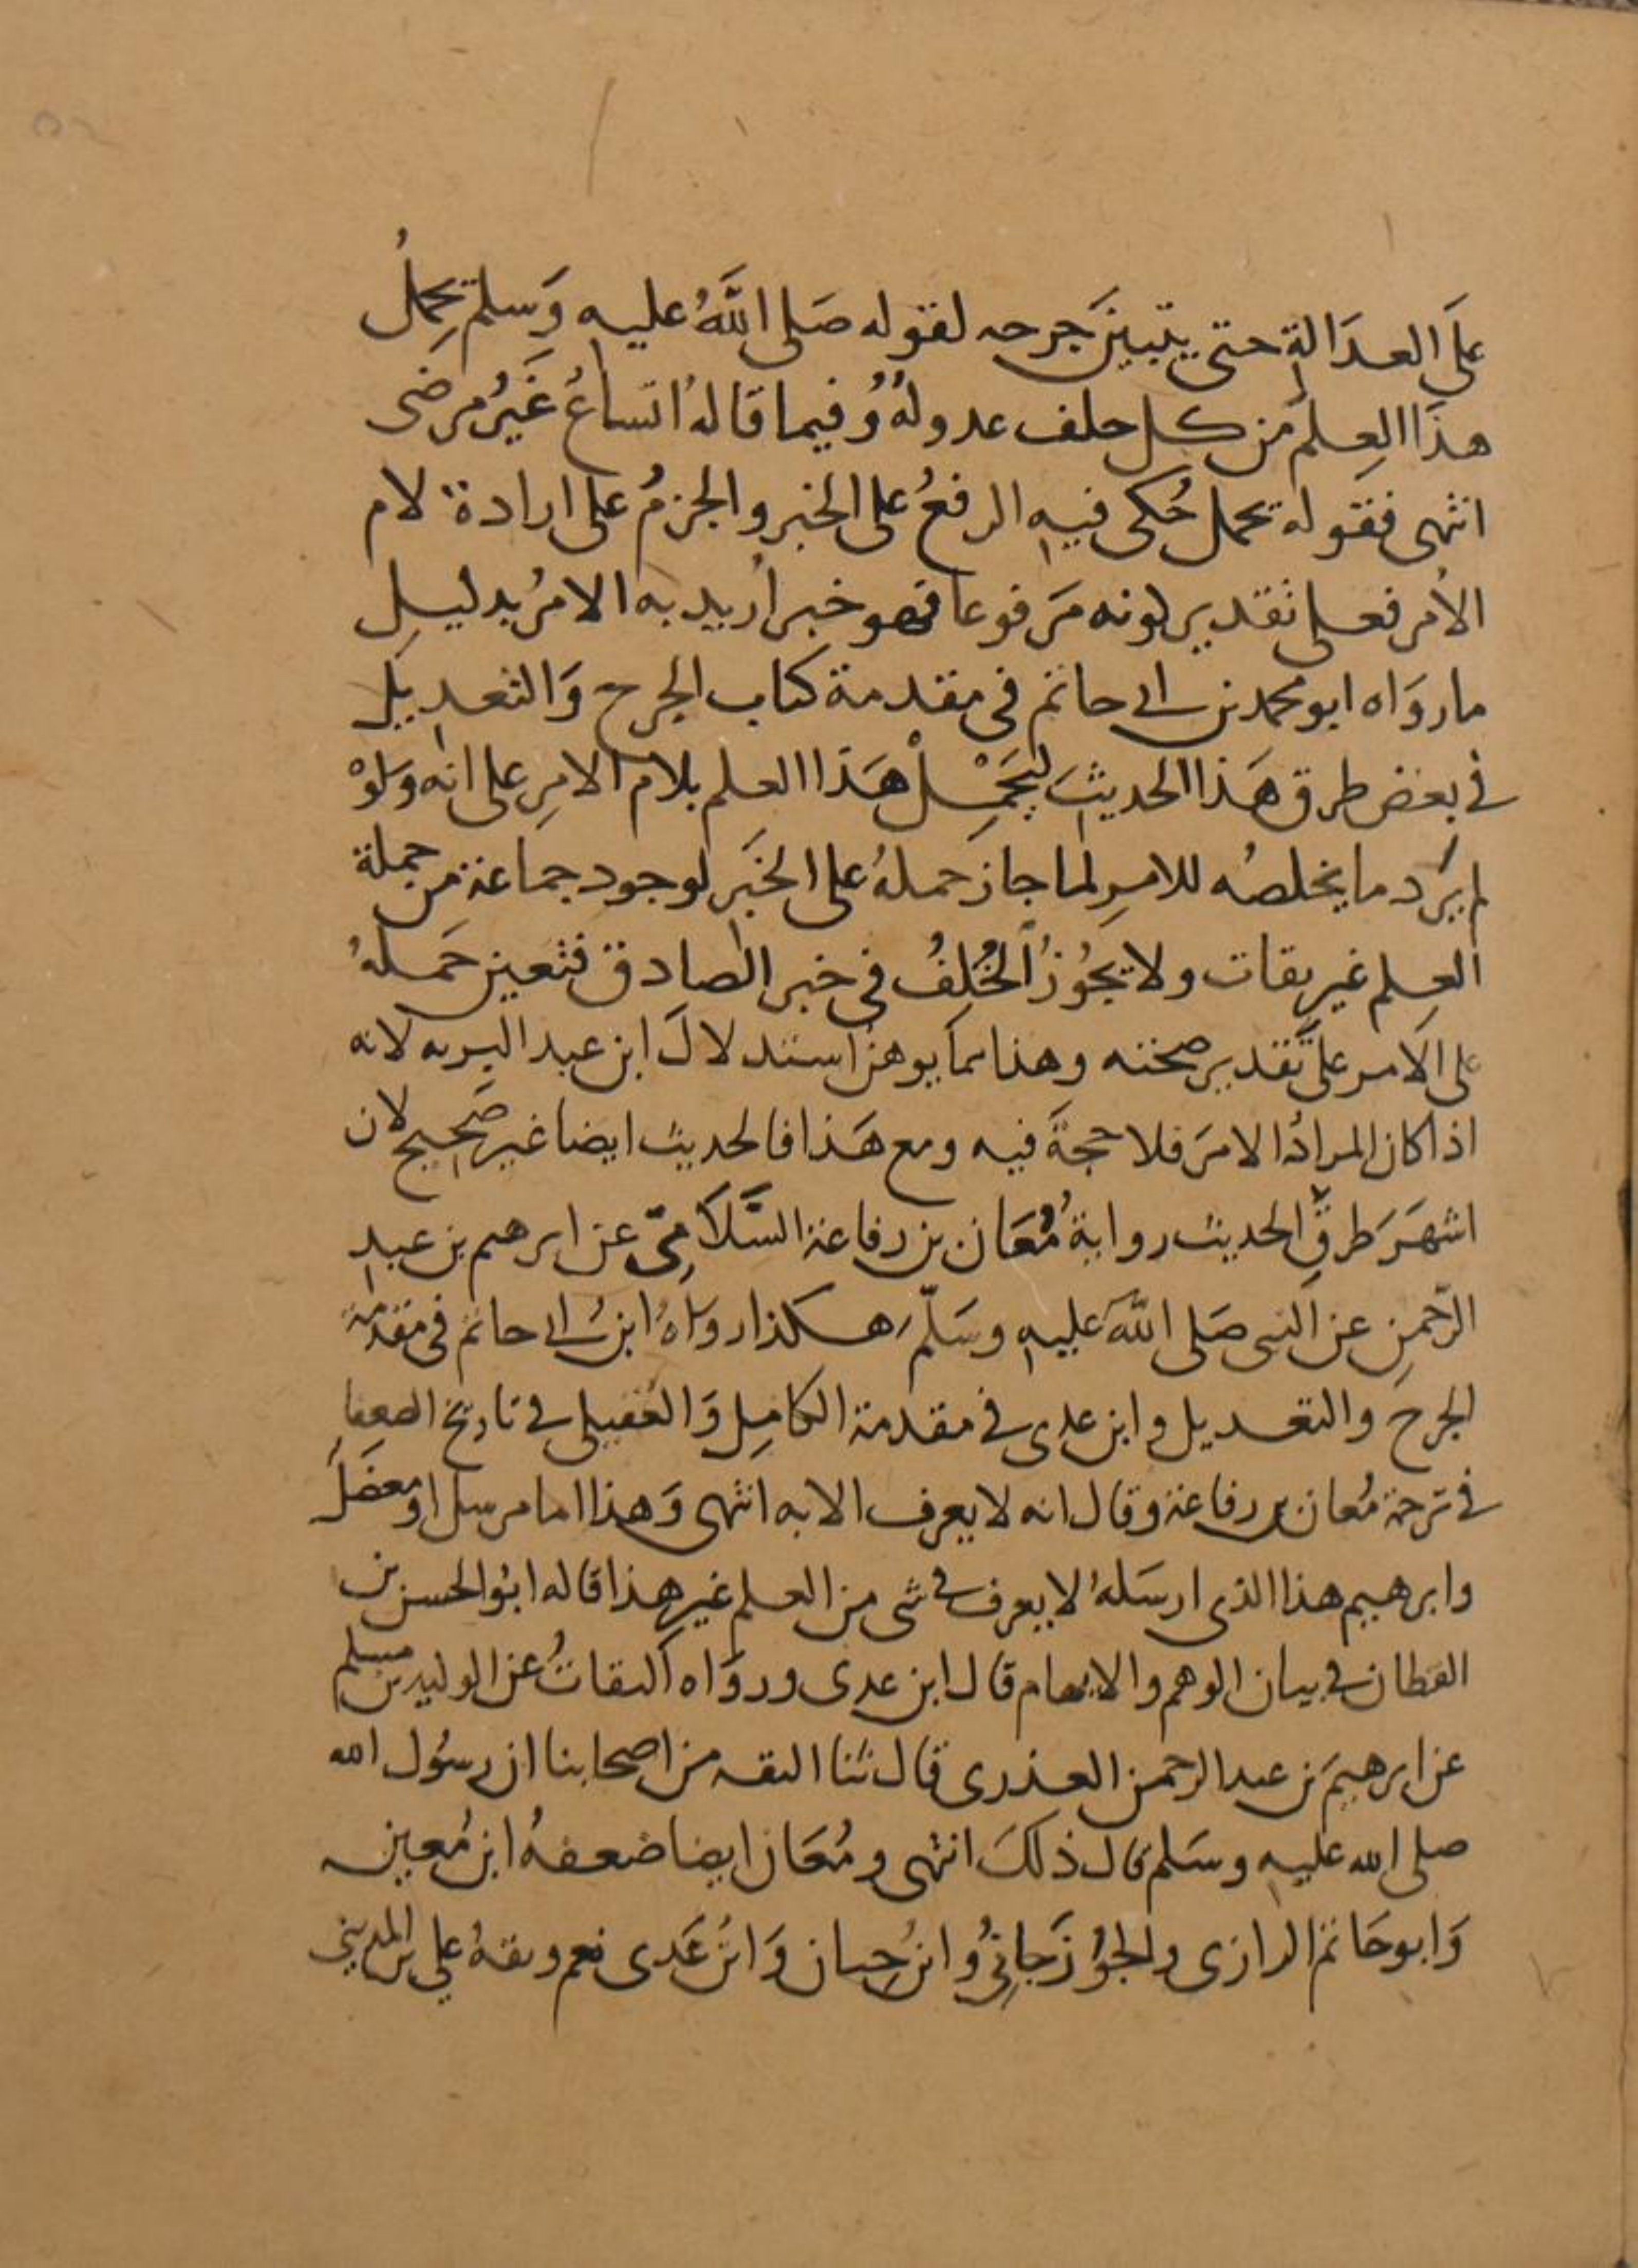 عَلَى العدَالة حتى يتبينَ جرحه لقوله صَلى اللهُ عليه وَسلم يَحِملُ
هذَا العِلمَ من كل خلف عدولهُ وُفيما قالهُ اتساعُ غَيرُ مرضى
انتهى فقوله يحمل حُكى فيهِ الرفعُ على الخبر والجزمُ على ارادة لام
الأمر فعلى تقدير كونه مَرفوعا فهو خبر أُريد به الامرُ بدليل
ما روَاه ابو محمد بن ابى حاتم في مقدمة كتاب الجرح وَالتعديل
في بعض طرق هَذا الحديث لِيَحْمِلْ هَذا العلم بلام الامرِ على انه وَلوْ
لم يَرد ما يخلصُه للامرِ لما جاز حملهُ على الخبَر لوجود جماعة من حملة
العِلم غير ثقات ولا يجُوزُ الخُلفُ في خبر الصادق فتعين حَملهُ
على الامر على تقدير صحته وهذا مما يوهن استدلالَ ابن عبد البر به لانه
اذا كان المرادُ الامرَ فلا حجةَ فيه ومع هَذا فالحديث ايضا غير صَحيح لان
اشهَرَ طرقِ الحديث روايةُ مُعَان بن رفاعة السَّلَامِيّ عن ابرهيم بن عبدِ
الرّحمنِ عن النبى صَلى اللهَ عليهِ وسَلّم هكذا رواهُ ابنُ ابى حاتم في مقدمة
الجرح والتعديل وابن عدى في مقدمة الكامِل وَالعُقيلى في تاريخ الضعفا
في ترجمة مُعان بن رفاعة وقال انه لا يعرف الا به انتهى وَهذا اما مرسل او معضَل
وابرهيم هذا الذى ارسَلهُ لا يعرف في شى من العلم غير هذا قاله ابُو الحسن بن
القطان في بيان الوهم والايهام قال ابن عدى وروَاه الثقاتُ عن الوليد بن مسلم
عن ابرهيمَ بن عبد الرحمن العذرى قال ثنا الثقه من اصحابنا ان رسُول الله
صلى الله عليهِ وسَلم قال ذلكَ انتهى ومُعَان ايضا ضعفهُ ابن مُعين
وَابو حَاتم الرازى والجُوُزَجانِىُّ وابنُ حِبان وَابنُ عَدى نعم وثقهُ علي بن المديني